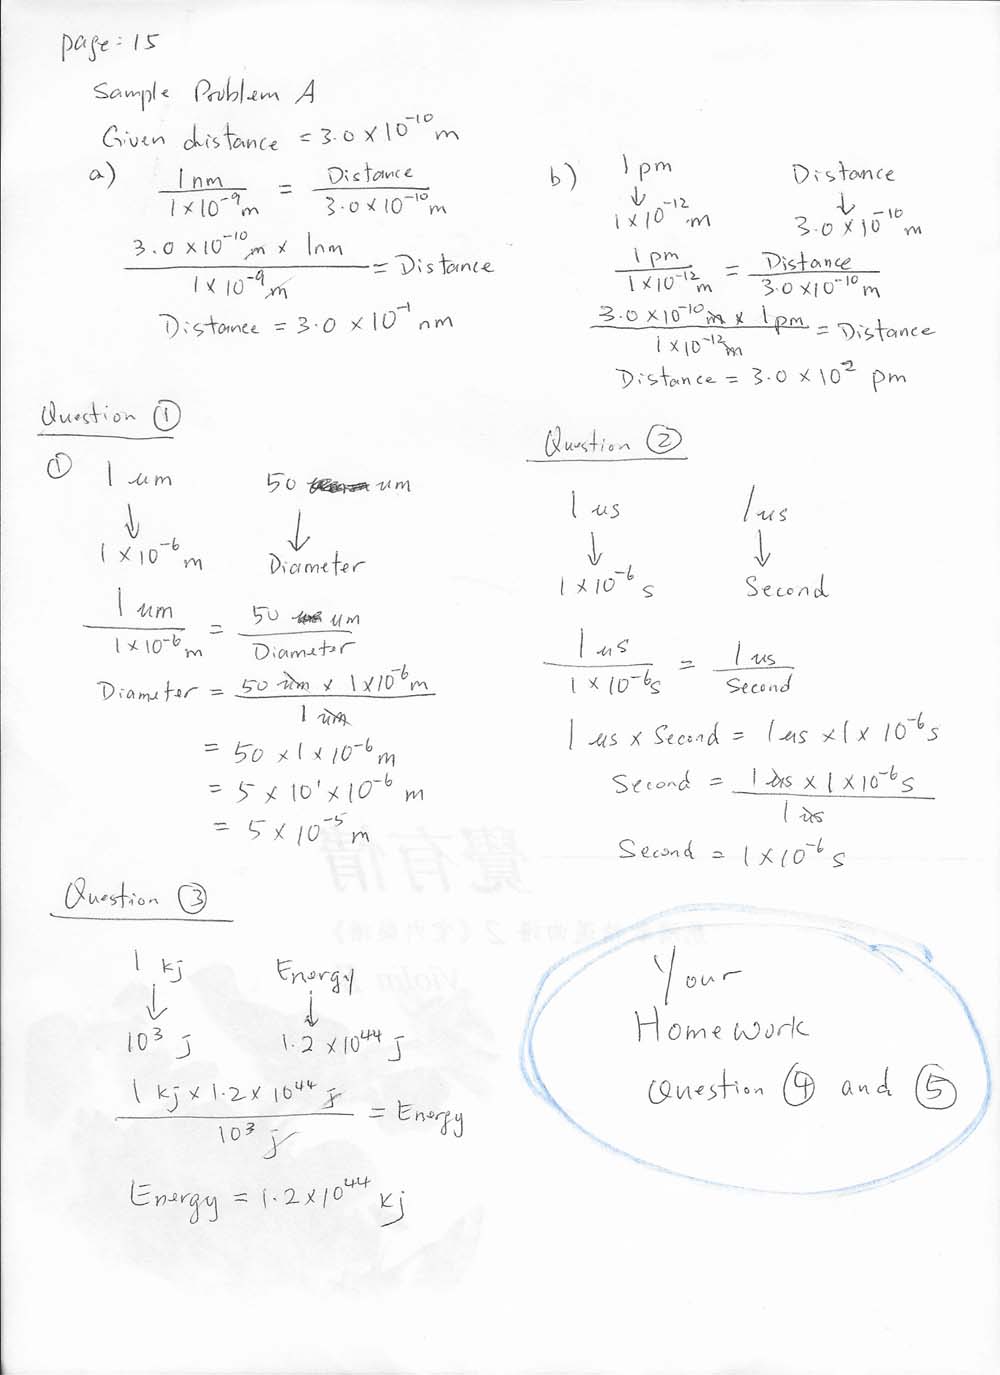 page: 15
Sample Problem A
Given distance = 3.0 × 10⁻¹⁰ m
a) 1 nm / 1 × 10⁻⁹ m = Distance / 3.0 × 10⁻¹⁰ m
3.0 × 10⁻¹⁰ m × 1 nm / 1 × 10⁻⁹ m = Distance
Distance = 3.0 × 10⁻¹ nm
b) 1 pm Distance
↓ ↓
1 × 10⁻¹² m 3.0 × 10⁻¹⁰ m
1 pm / 1 × 10⁻¹² m = Distance / 3.0 × 10⁻¹⁰ m
3.0 × 10⁻¹⁰ m × 1 pm / 1 × 10⁻¹² m = Distance
Distance = 3.0 × 10² pm
Question ①
① 1 um 50 um
↓ ↓
1 × 10⁻⁶ m Diameter
1 um / 1 × 10⁻⁶ m = 50 um / Diameter
Diameter = 50 um × 1 × 10⁻⁶ m / 1 um
= 50 × 1 × 10⁻⁶ m
= 5 × 10¹ × 10⁻⁶ m
= 5 × 10⁻⁵ m
Question ②
1 us 1 us
↓ ↓
1 × 10⁻⁶ s Second
1 us / 1 × 10⁻⁶ s = 1 us / Second
1 us × Second = 1 us × 1 × 10⁻⁶ s
Second = 1 us × 1 × 10⁻⁶ s / 1 us
Second = 1 × 10⁻⁶ s
Question ③
1 kj Energy
↓ ↓
10³ j 1.2 × 10⁴⁴ j
1 kj × 1.2 × 10⁴⁴ j / 10³ j = Energy
Energy = 1.2 × 10⁴⁴ kj
Your
Homework
Question ④ and ⑤